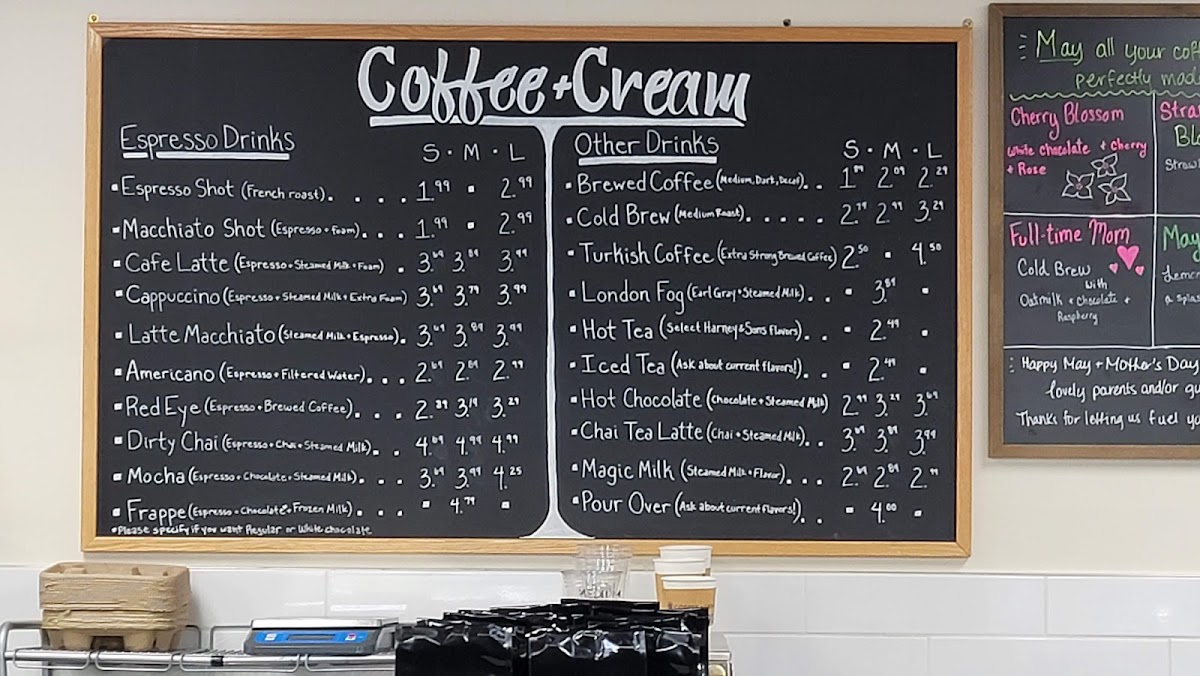 Coffee + Cream
Espresso Drinks
S · M · L
Espresso Shot (French roast). . . . . 1.99 ▪ 2.99
Macchiato Shot (Espresso + foam). . . . 1.99 ▪ 2.99
Cafe Latte (Espresso + Steamed Milk + Foam) . 3.69 3.89 3.99
Cappuccino (Espresso + Steamed Milk + Extra Foam) 3.69 3.79 3.99
Latte Macchiato (Steamed Milk + Espresso). 3.69 3.89 3.99
Americano (Espresso + Filtered Water). . . 2.69 2.89 2.99
Red Eye (Espresso + Brewed Coffee). . . . 2.89 3.19 3.29
Dirty Chai (Espresso + Chai + Steamed Milk). . 4.69 4.99 4.99
Mocha (Espresso + Chocolate + Steamed Milk). . . 3.69 3.99 4.25
Frappe (Espresso + Chocolate + Frozen Milk). . ▪ 4.79 ▪
Please specify if you want Regular or White chocolate
Other Drinks
S · M · L
Brewed Coffee (Medium, Dark, Decaf). . 1.89 2.09 2.29
Cold Brew (Medium Roast). . . . . 2.79 2.99 3.29
Turkish Coffee (Extra Strong Brewed Coffee) 2.50 ▪ 4.50
London Fog (Earl Gray + Steamed Milk). . ▪ 3.89 ▪
Hot Tea (Select Harney & Sons flavors). . ▪ 2.49 ▪
Iced Tea (Ask about current flavors!). . ▪ 2.49 ▪
Hot Chocolate (Chocolate + Steamed Milk) 2.99 3.29 3.69
Chai Tea Latte (Chai + Steamed Milk). . 3.69 3.89 3.99
Magic Milk (Steamed Milk + Flavor). . . 2.69 2.89 2.99
Pour Over (Ask about current flavors!). . ▪ 4.00 ▪
May all your cof
perfectly mad
Cherry Blossom
White chocolate + Cherry
+ Rose
Stra
Blo
Straw
Full-time Mom
Cold Brew
with
Oatmilk + Chocolate +
Raspberry
May
Lemon
a splas
Happy May + Mother's Day
lovely parents and/or gu
Thanks for letting us fuel yo